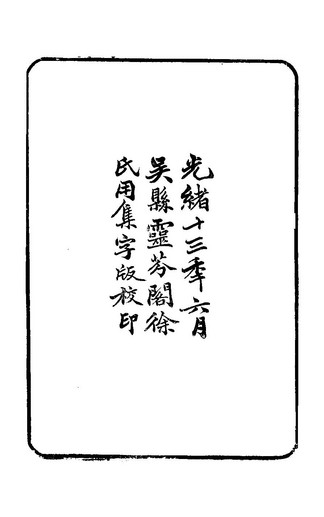 光緒十三年六月
吳縣靈芬閣徐
氏用集字版校印